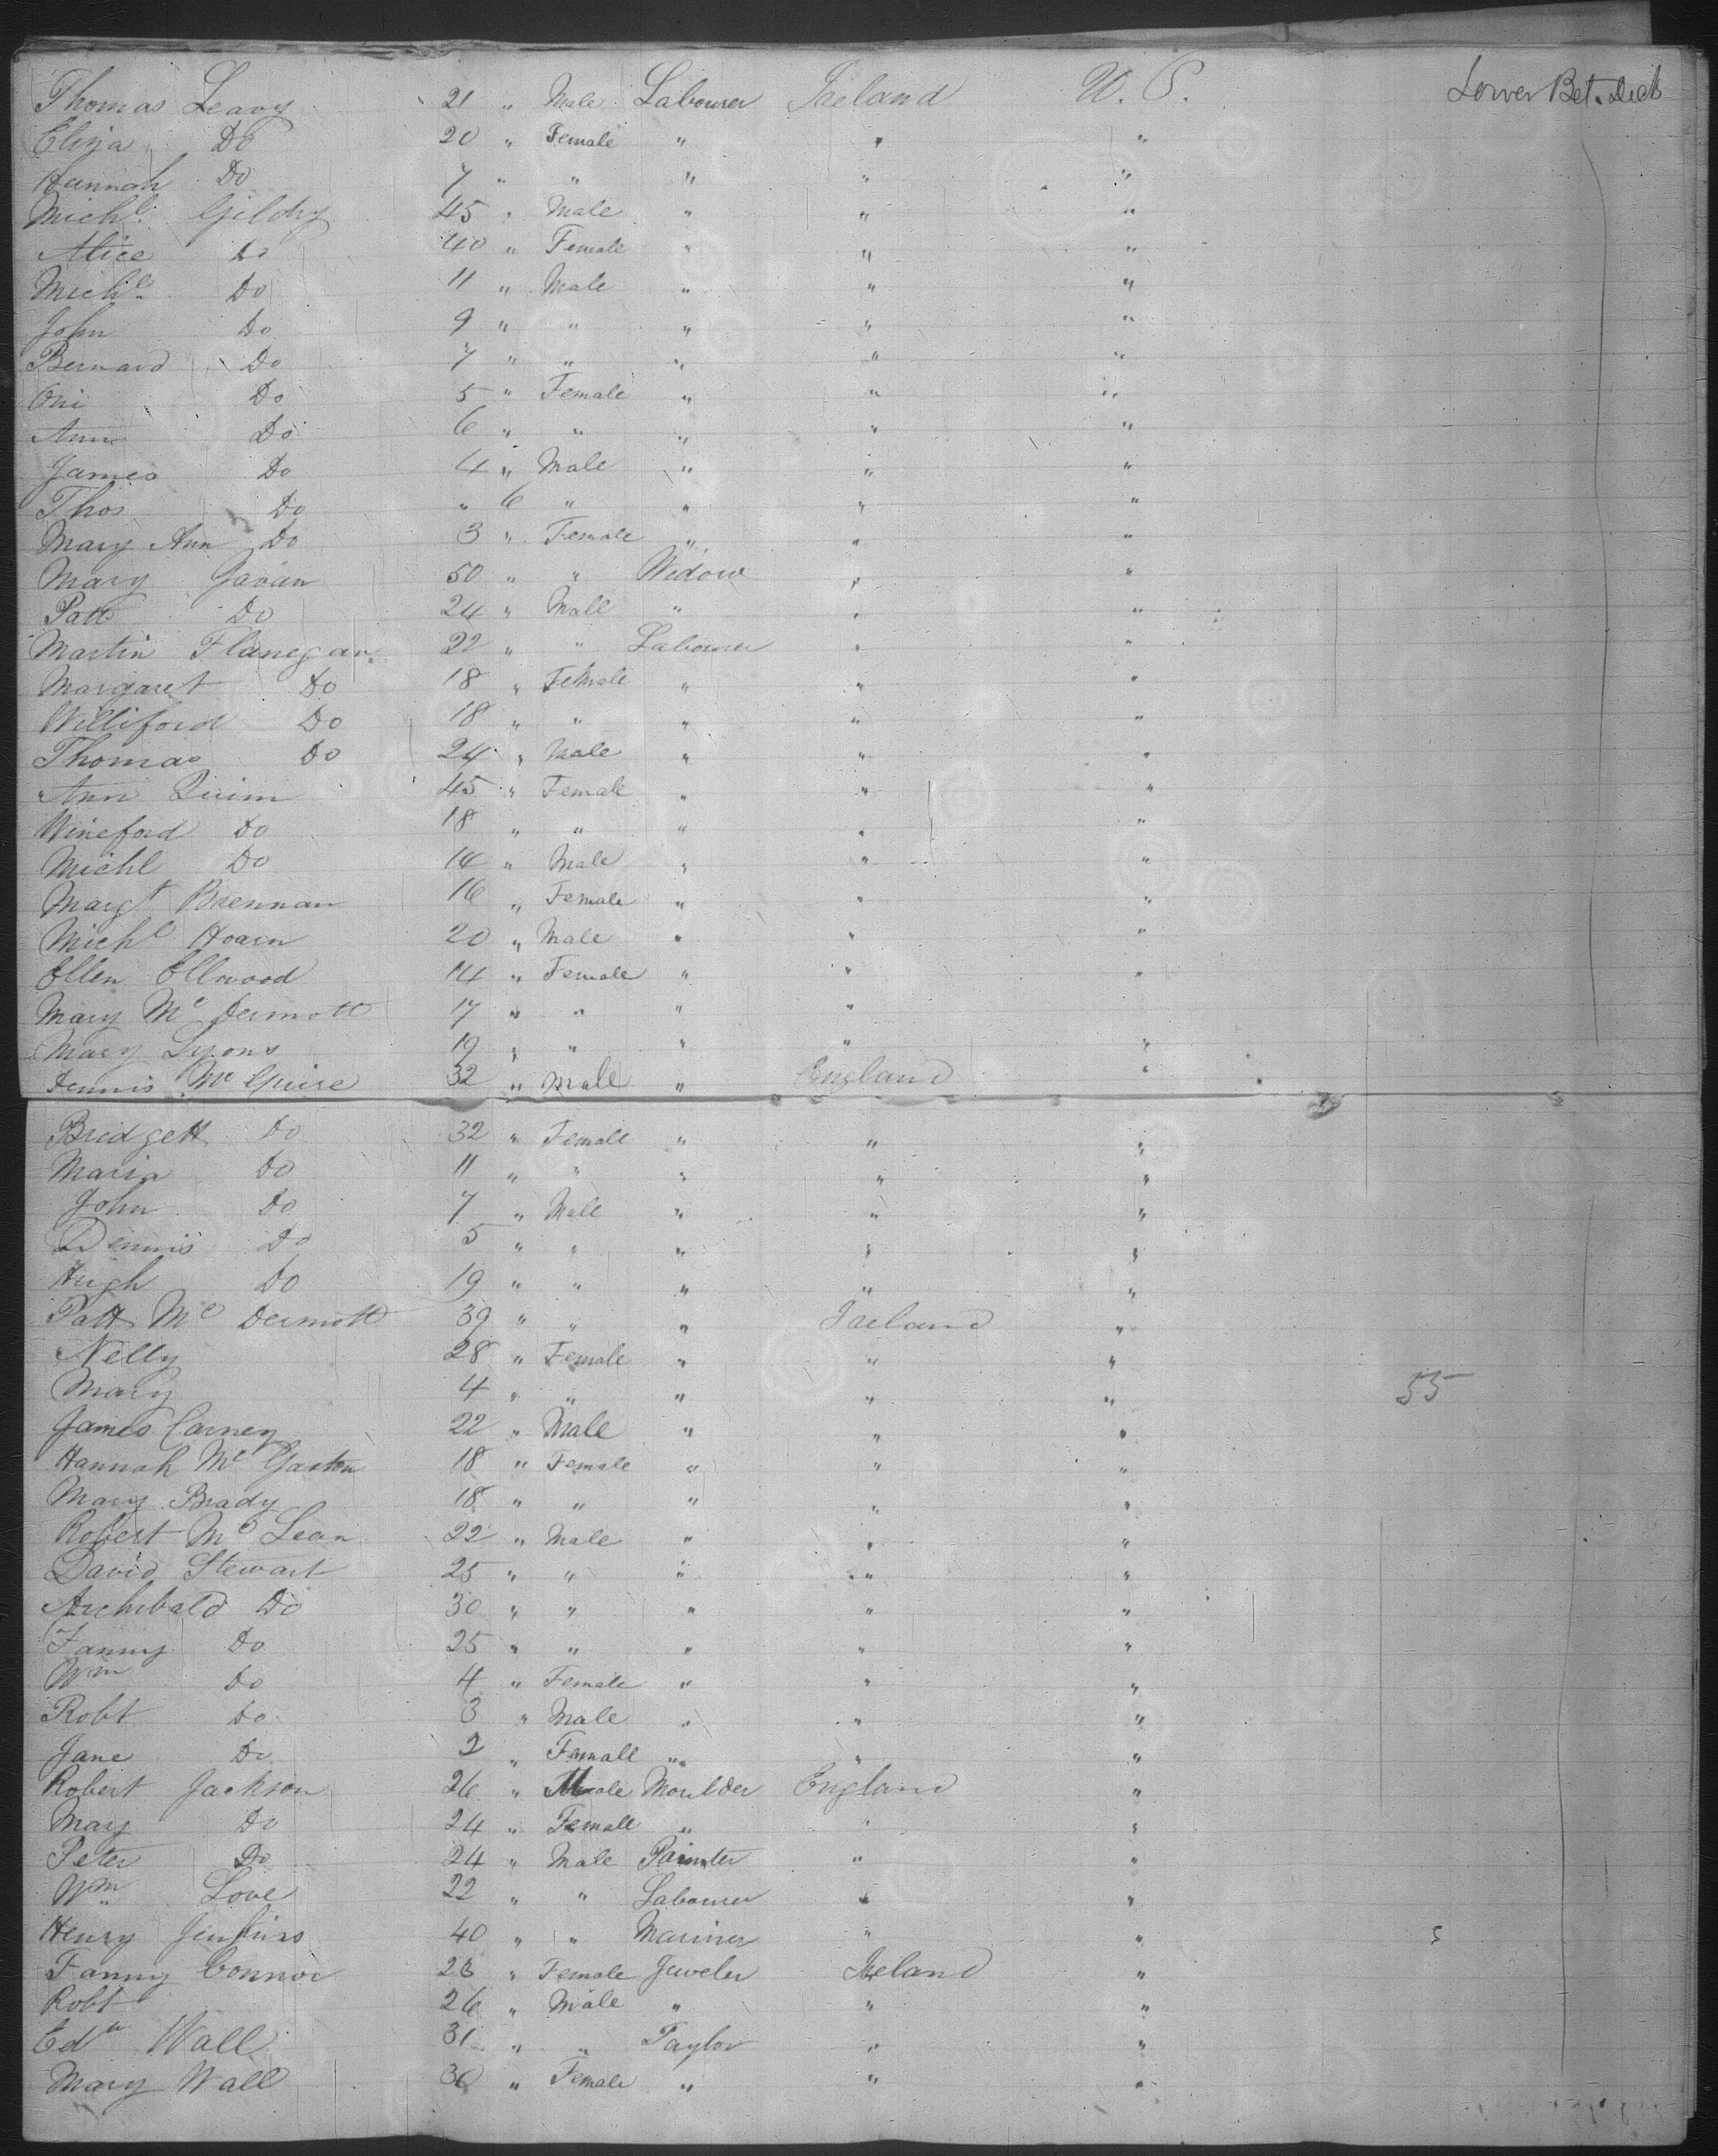 Thomas Leavy 21 " Male Labourer Ireland U. S. Lower Bet. Deck
Eliza Do 20 " Female " " "
Hannah Do 7 " " " " "
Michl. Gildry 45 " Male " " "
Alice Do 40 " Female " " "
Michl. Do 11 " Male " " "
John Do 9 " " " " "
Bernard Do 7 " " " " "
Oni Do 5 " Female " " "
Ann Do 6 " " " " "
James Do 4 " Male " " "
Thos Do " 6 " " " "
Mary Ann Do 3 " Female " " "
Mary Gavan 50 " " Widow " "
Patt Do 24 " Male " " "
Martin Flanegan 22 " " Labourer " "
Margaret Do 18 " Female " " "
Williford Do 18 " " " " "
Thomas Do 24 " Male " " "
Ann Quinn 45 " Female " " "
Wineford Do 18 " " " " "
Michl Do 14 " Male " " "
Margt Brennan 16 " Female " " "
Michl Hoarn 20 " Male " " "
Ellen Ellwood 14 " Female " " "
Mary Mc Dermott 17 " " " "
Mary Lyons 19 " " " " "
Dennis Mc Guire 32 " Male " England "
Bridgett Do 32 " Female " " "
Maria Do 11 " " " " "
John Do 7 " Male " " "
Dennis Do 5 " " " " "
Hugh Do 19 " " " " "
Patt Mc Dermott 39 " " " Ireland "
Nelly 28 " Female " " "
Mary 4 " " " " " 55
James Carney 22 " Male " " "
Hannah Mc 18 " Female " " "
Mary Brady 18 " " " " "
Robert Mc Lean 22 " Male " " "
David Stewart 25 " " " " "
Archibald Do 30 " " " " "
Fanny Do 25 " " " " "
Wm Do 4 " Female " " "
Robt Do 3 " Male " " "
Jane Do 2 " Female " " "
Robert Jackson 26 " Male Moulder England "
Mary Do 24 " Female " " "
Peter Do 24 " Male Painter " "
Wm Love 22 " " Labourer " "
Henry Jenkins 40 " " Mariner " " 5
Fanny Connor 23 " Female Jeweler Ireland "
Robt 26 " Male " " "
Edw Wall 31 " " Taylor " "
Mary Wall 30 " Female " " "